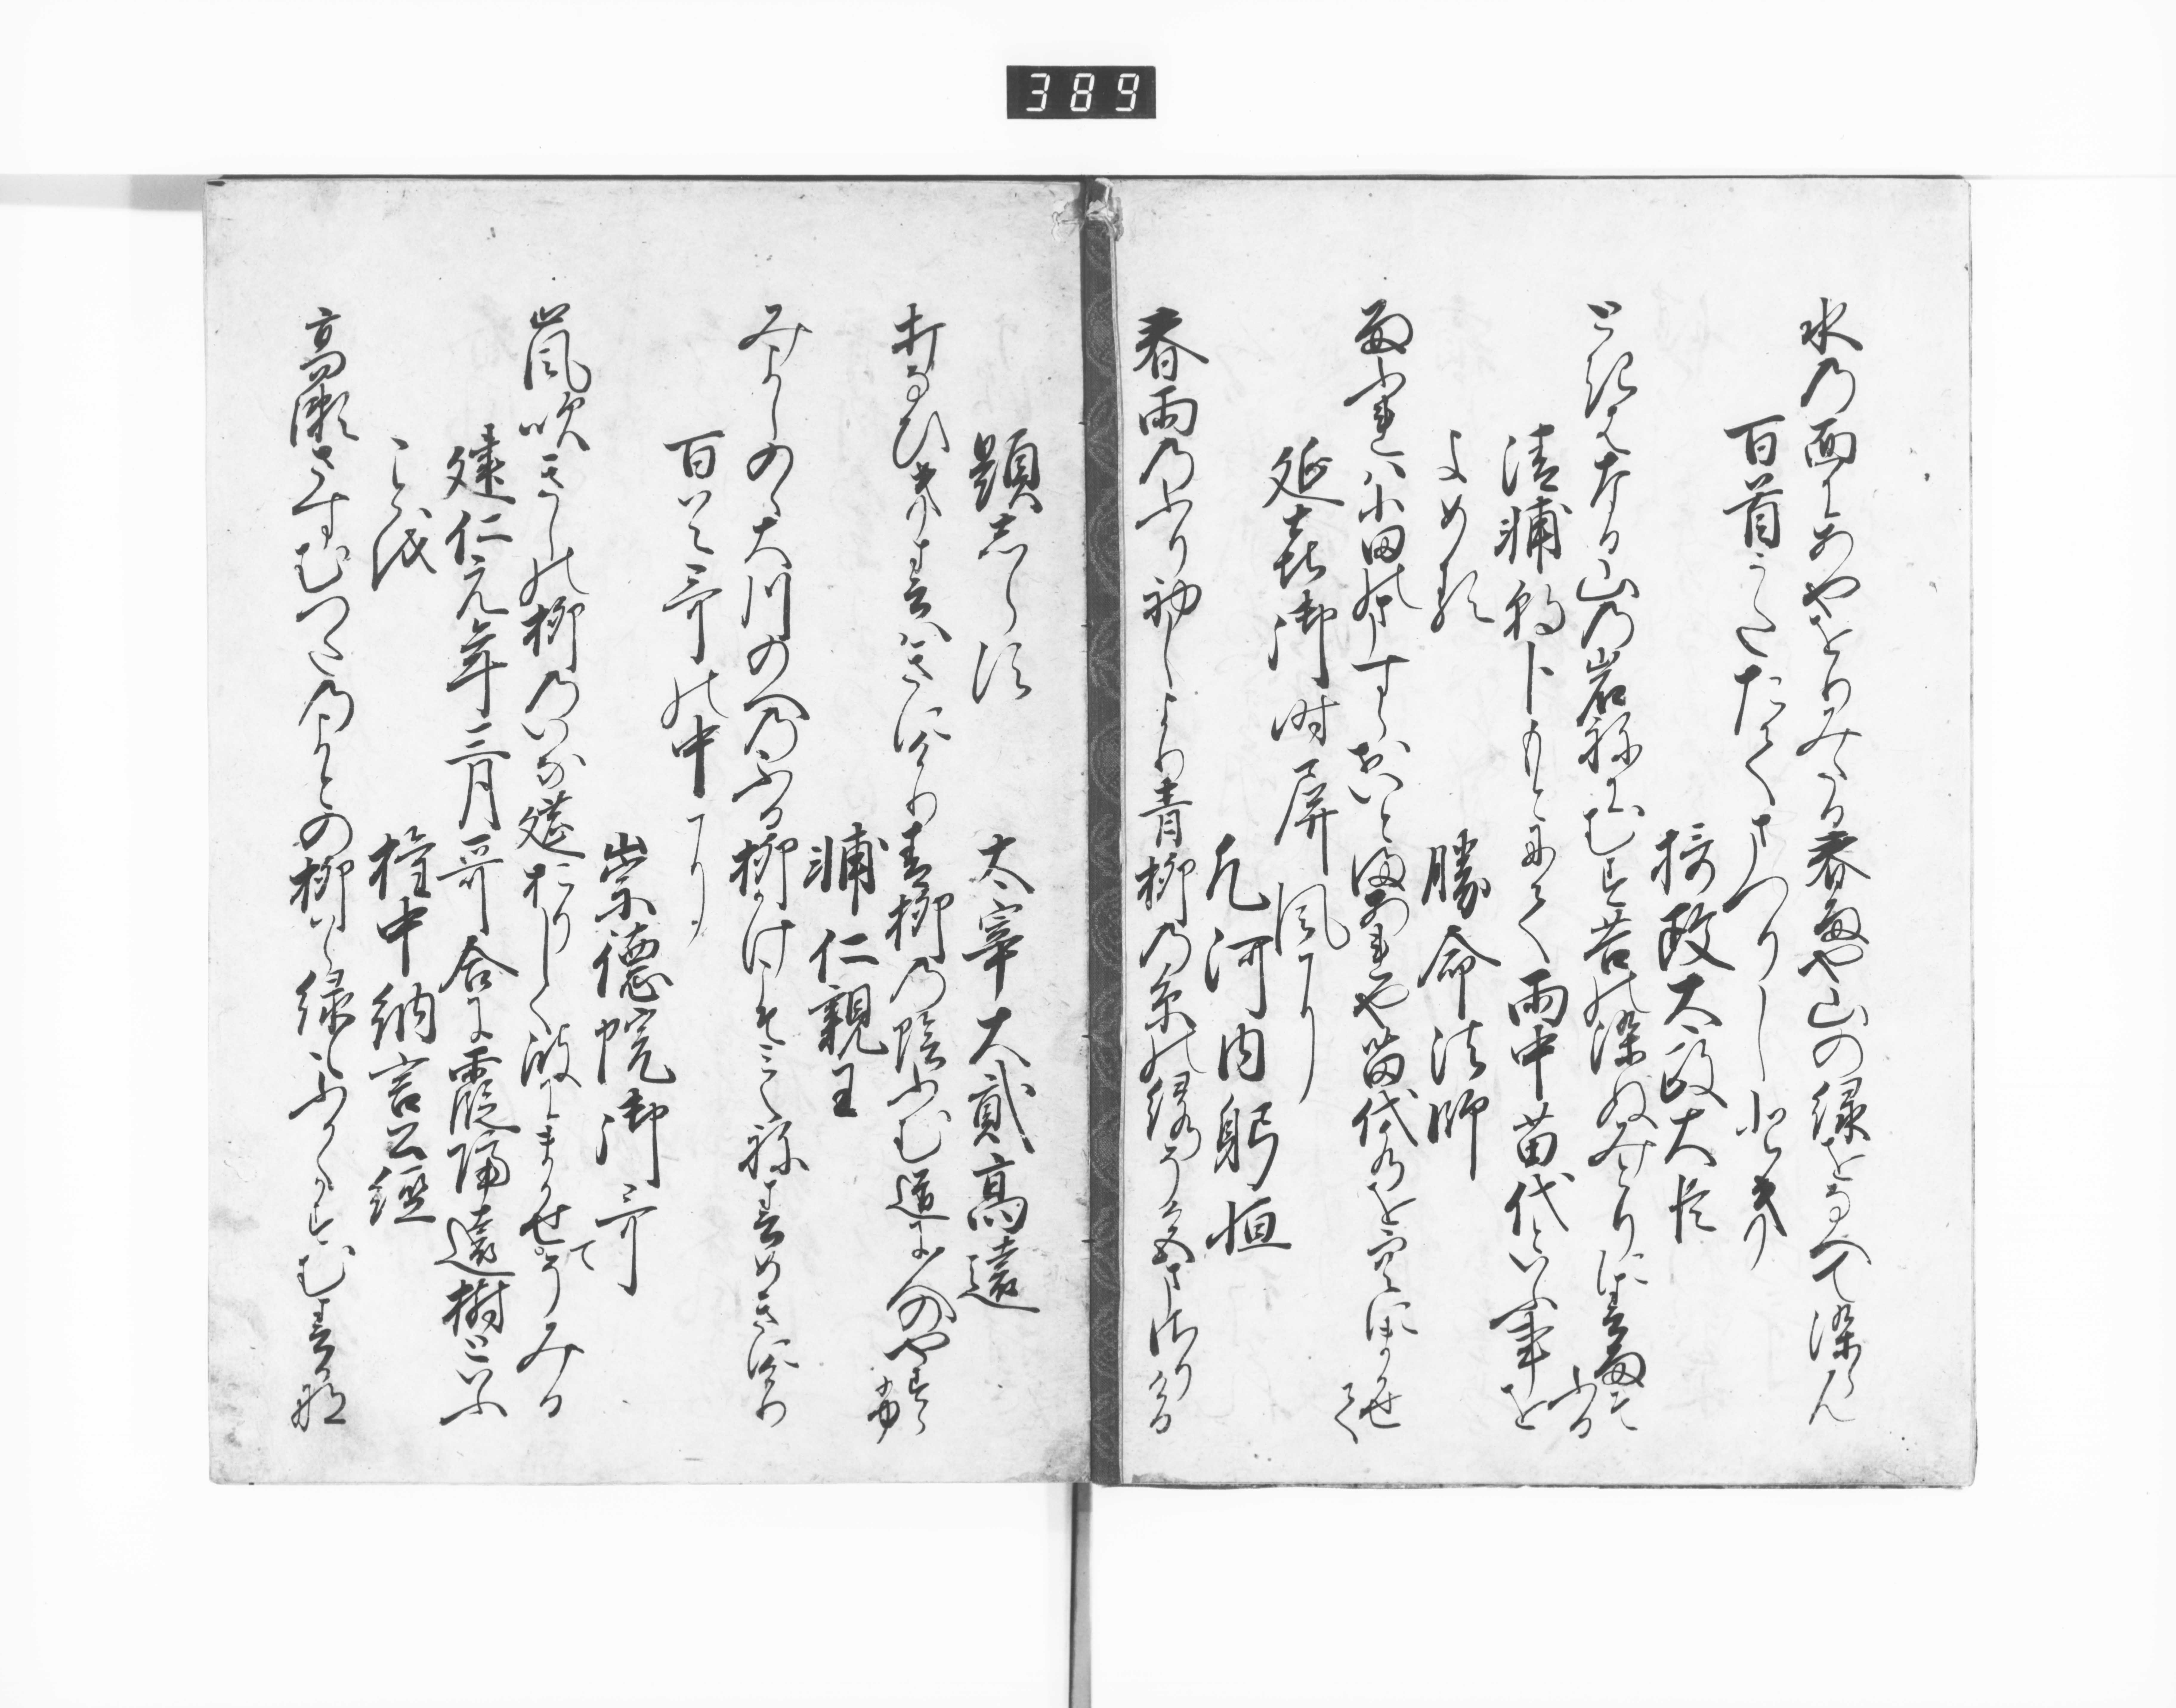 389
水乃面にあやをりみたる春雨や山の緑をなへて染らん
百首うたたてまつりしとき
摂政太政大臣
ときはなる山乃岩ねにむす苔の染ぬみとりに春雨そふる
清輔朝臣もとにて雨中苗代といふ事を
よめる
勝命法師
雨ふれは小田のますらおいとまあれや苗代水を空にまかせて
延喜御時屏風に
凡河内躬恒
春雨乃ふり初しより青柳乃糸の緑そ色まさりける
題しらす
太宰大貳高遠
打なひき春はきにけり青柳乃陰ふむ道に人のやすらふ
輔仁親王
みよしのゝ大川のへ乃ふる柳かけこそみえね春めきにけり
百首哥の中に
崇徳院御哥
嵐吹きしの柳乃いなむしろおりしく波にまかせてそみる
建仁元年三月哥合に霞隔遠樹といふ
ことを
権中納言公經
高瀬さすむつた乃よとの柳はら緑もふかくかすむ春かな